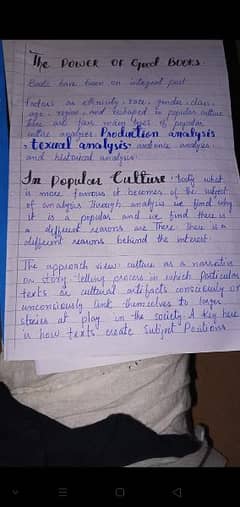 The POWER OF Good BOOKS.
Books have been an integral part
factors as ethnicity, race, gender, class,
age, region, and reshaped in popular culture
There are four main types of popular
culture analyses. Production analysis
, texual analysis, audience analysis
and historical analysis.
In Popular Culture, today what
is more famous it becomes of the subject
of analysis through analysis we find why
it is a popular and we find there is
a different reasons are There. There is a
different reasons behind the interest.
The approach view culture as a narrative
or story-telling process in which particular
texts or cultural artifacts consciously or
unconsciously link themselves to larger
stories at play in the society. A key here
is how texts create subject Positions